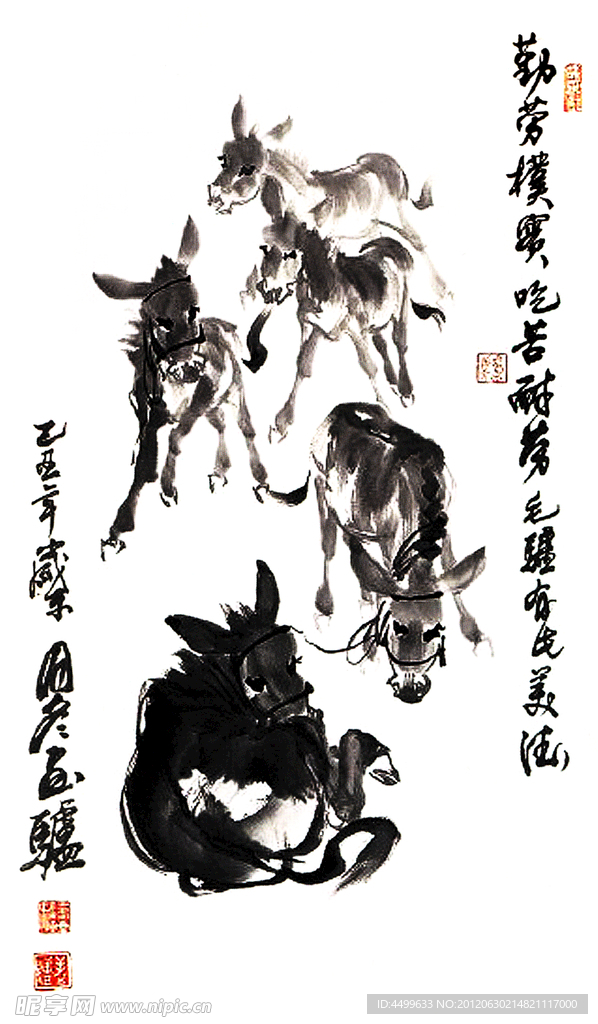 勤劳樸實吃苦耐劳毛驢有此美德
乙丑年歲末
画驢
昵享网 www.nipic.cn
ID:4499633 NO:20120630214821117000